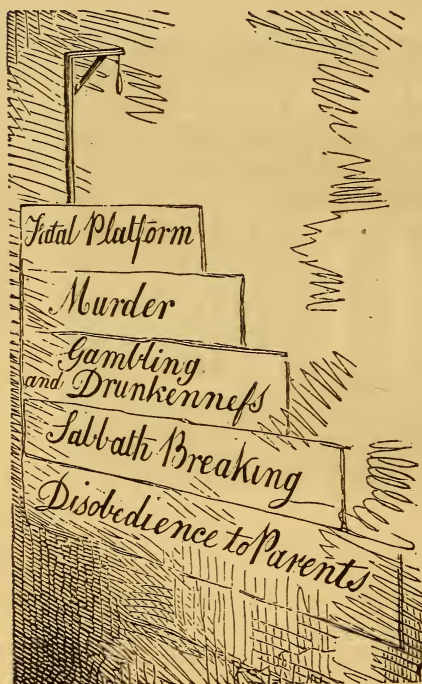 Fatal Platform
Murder
Gambling
and Drunkenneſs
Sabbath Breaking
Disobedience to Parents